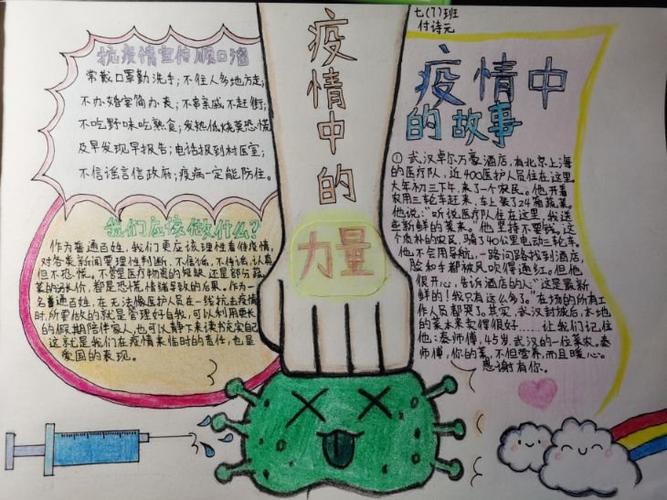 七(7)班
付诗元
抗疫情宣传顺口溜
常戴口罩勤洗手;不住人多地方走;
不办婚宴简办丧;不串亲戚不赶街;
不吃野味吃熟食;发热低烧莫恐慌
及早发现早报告;电话报到村医室;
不信谣言信政府;疫病一定能防住。
我们应该做什么?
作为普通百姓,我们更应该理性看待疫情,
对各类新闻要理性判断,不信谣,不传谣,认真
但不恐慌。不管是医疗物资的短缺还是部分蔬
菜的涨价,都是恐慌情绪导致的后果。作为一
名普通百姓,在无法像医护人员在一线抗击疫情
时,所要做的就是管理好自我,可以利用更长
的假期陪伴家人,也可以静下来读书充实自己
这就是我们在疫情来临时的责任,也是
爱国的表现。
疫情中的
力量
疫情中
的故事
① 武汉卓尔万豪酒店,有北京上海
的医疗队,近400医护人员住在这里
大年初三下午,来了一个农民。他开着
农用三轮车赶来,车上装了24箱蔬菜。
他说:“听说医疗队住在这里,我送
些新鲜的菜来。”他坚持不要钱。这
个质朴的农民,骑了40公里电动三轮车。
他不会用导航,一路问路找到酒店,
脸和手都被风吹得通红。但他
很开心,告诉酒店的人“这是最新
鲜的!我只有这么多了。”在场的所有工
作人员都哭了。其实,武汉封城后,本地
的菜本来卖得很好……让我们记住
他:秦师傅,45岁,武汉的一位菜农。秦
师傅,你的菜,不但营养,而且暖心。
感谢有你。